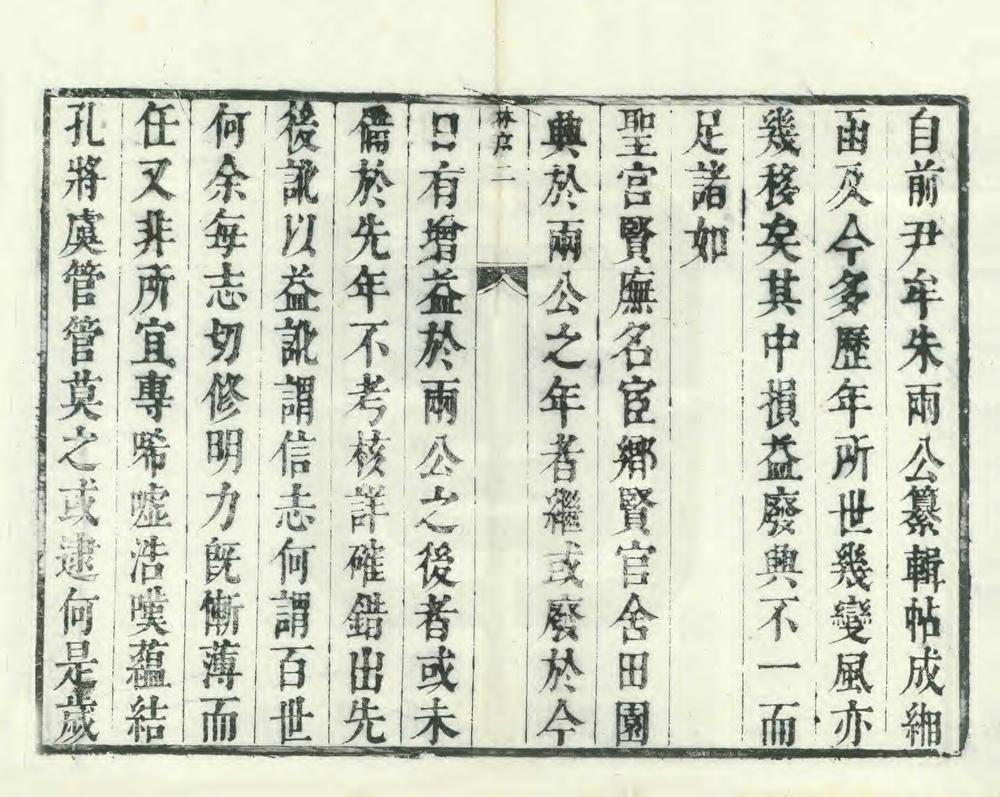 自前尹牟朱兩公纂輯帖成緗
函及今多歷年所世幾變風亦
幾移矣其中損益廢興不一而
足諸如
聖宮賢廡名宦鄉賢官舍田園
典於兩公之年者繼或廢於今
林序二
日有增益於兩公之後者或未
備於先年不考核詳確錯出先
後訛以益訛謂信志何謂百世
何余每志切修明力旣慚薄而
任又非所宜專唏噓浩嘆蘊結
孔將虞管管莫之或逮何是歲